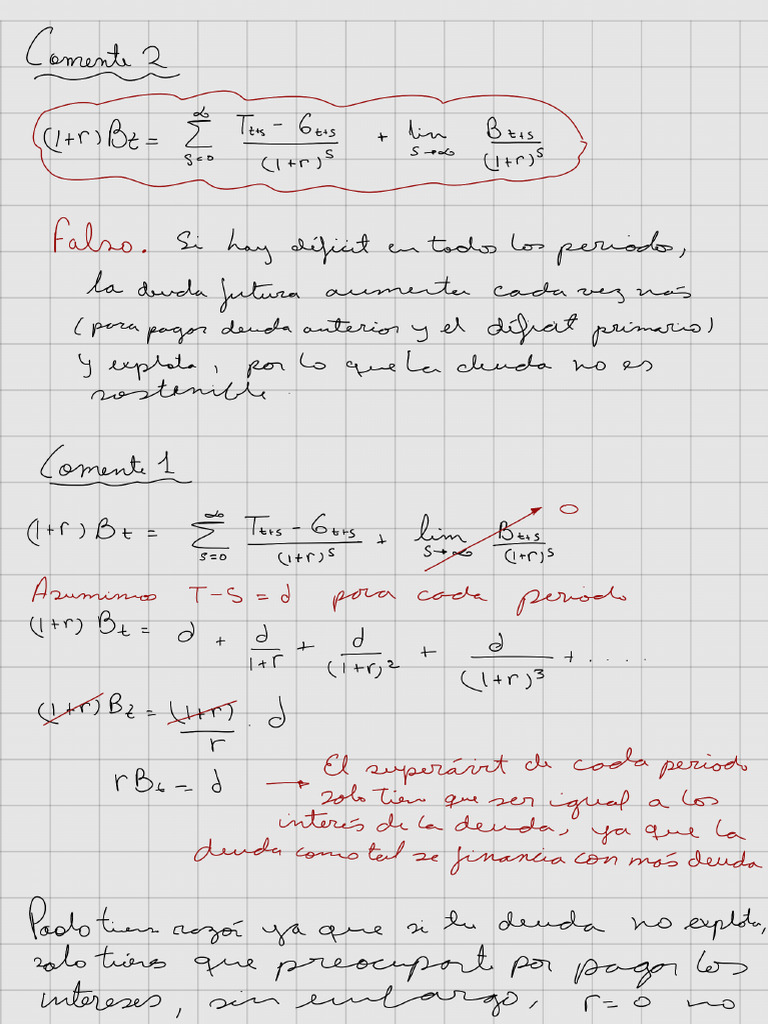 Comente 2
(1+r) Bt = ∑_{s=0}^{∞} (T_{t+s} - G_{t+s}) / (1+r)^s + lim_{s→∞} B_{t+s} / (1+r)^s
Falso. Si hay déficit en todos los periodos,
la deuda futura aumenta cada vez más
(para pagar deuda anterior y el déficit primario)
y explota, por lo que la deuda no es
sostenible
Comente 1
(1+r) Bt = ∑_{s=0}^{∞} (T_{t+s} - G_{t+s}) / (1+r)^s + lim_{s→∞} B_{t+s} / (1+r)^s → 0
Asumimos T-S = d para cada periodo
(1+r) Bt = d + d/(1+r) + d/(1+r)^2 + d/(1+r)^3 + .....
(1+r) Bt = (1+r)/r . d
r Bt = d → El superávit de cada periodo
solo tien que ser igual a los
interés de la deuda, ya que la
deuda como tal se financia con más deuda
razó ya que si tu deuda no explota,
solo tienes que preocuparte por pagar los
intereses, sin embargo, r=0 no